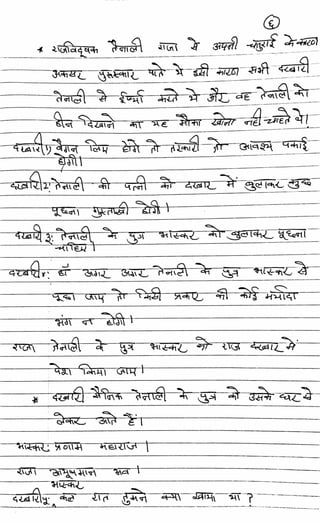 ६
* राजविदूषक तेनाली राजा से अपनी चतुराई के कारण
अकसर पुरूस्कार पाते थे इसी कारण सभी दरबारी
तेनाली से ईर्ष्या करते थे और वह तेनाली को
हीन दिखाने का यह मौका खोना नही चाहते थे।
दरबारी1) बैंगन लिए होगें तो तरकारी तो आवश्य पकाई
होगी।
दरबारी2: तेनाली की पत्नी को दरबार में बुलाकर कुछ
पूछना गुस्ताखी होगी।
दरबारी3: तेनाली के पुत्र भास्कर को बुलाकर पूछना
चाहिए।
दरबारी4: हाँ अगर अगर तेनाली के पुत्र भास्कर से
पूछा जाए तो किसी प्रकार की कोई मर्यादा
भंग न होगी।
राजा तेनाली के पुत्र भास्कर को राज दरबार में
पेश किया जाए।
* दरबारी सैनिक तेनाली के पुत्र को उसके घर से
लेकर आते हैं।
भास्कर: प्रणाम महाराज।
राजा आयुषमान भव।
भास्कर
दरबारी कल रात तुमने क्या खाया था?